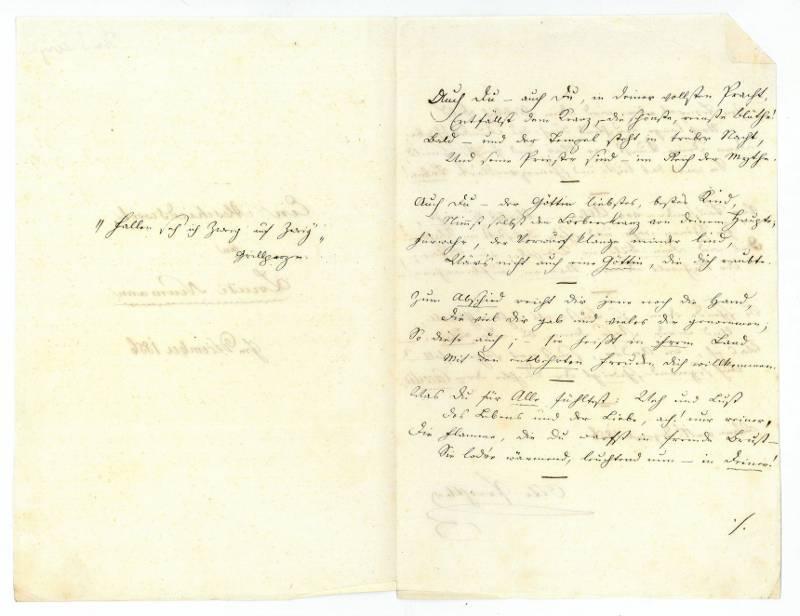 "Fallen seh' ich Zweig auf Zweig"
Grillparzer.
Auch Du – auch Du, in deiner vollsten Pracht,
Entfällst dem Kranz, die schönste, reinste Blüthe!
Bald – und der Tempel steht in trüber Nacht,
Und seine Priester sind – im Reich der Mythe.
Auch Du – der Göttin liebstes, bestes Kind,
Nimmst selbst den Lorbeerkranz von deinem Haupte,
Fürwahr, der Vorwurf klänge minder lind,
Wär's nicht auch eine Göttin, die dich raubte.
Zum Abschied reicht dir jene noch die Hand,
Die viel dir gab und vieles dir genommen;
So diese auch; – sie heißt in ihrem Land
Mit den entbehrten Freuden dich willkommen.
Was Du für Alle fühltest: Weh und Lust
Des Lebens und der Liebe, ach! nur reiner,
Die Flamme, die du warfst in fremde Brust –
Sie lod're wärmend, leuchtend nun – in Deiner!
./.